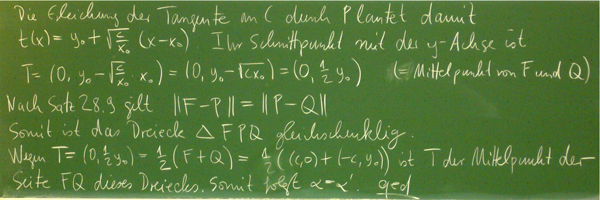 Die Gleichung der Tangente an C durch P lautet damit
t(x) = y₀ + √(c/x₀) (x - x₀) Ihr Schnittpunkt mit der y-Achse ist
T = (0, y₀ - √(c/x₀) x₀) = (0, y₀ - √(cx₀)) = (0, ½ y₀) (= Mittelpunkt von F und Q)
Nach Satz 28.9 gilt ‖F-P‖ = ‖P-Q‖
Somit ist das Dreieck △ FPQ gleichschenklig.
Wegen T = (0, ½ y₀) = ½ (F+Q) = ½ ((c,0) + (-c, y₀)) ist T der Mittelpunkt der
Seite FQ dieses Dreiecks. Somit folgt α = α'. qed